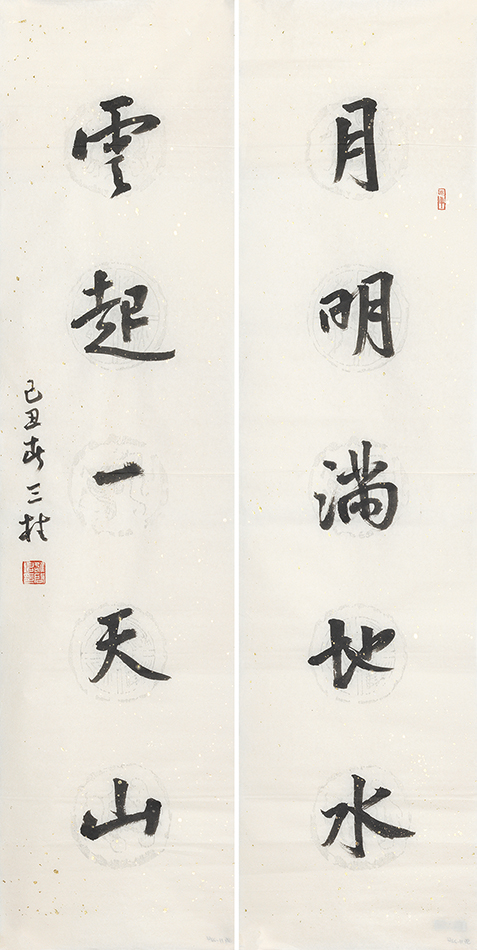 月明满地水
雲起一天山
己丑春三柱